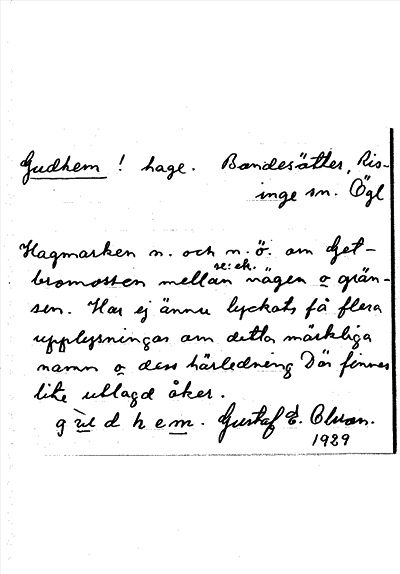 Gudhem ! hage. Bondesätter, Ris-
inge sn. Ögl
Hagmarken n. och n.ö. om Get-
se: ek.
bromossen mellan vägen o grän-
sen. Har ej ännu lyckats få flera
upplysningar om detta märkliga
namn o dess härledning Där finnes
lite utlagd åker.
g ù d h e m. Gustaf E. Olsson.
1929